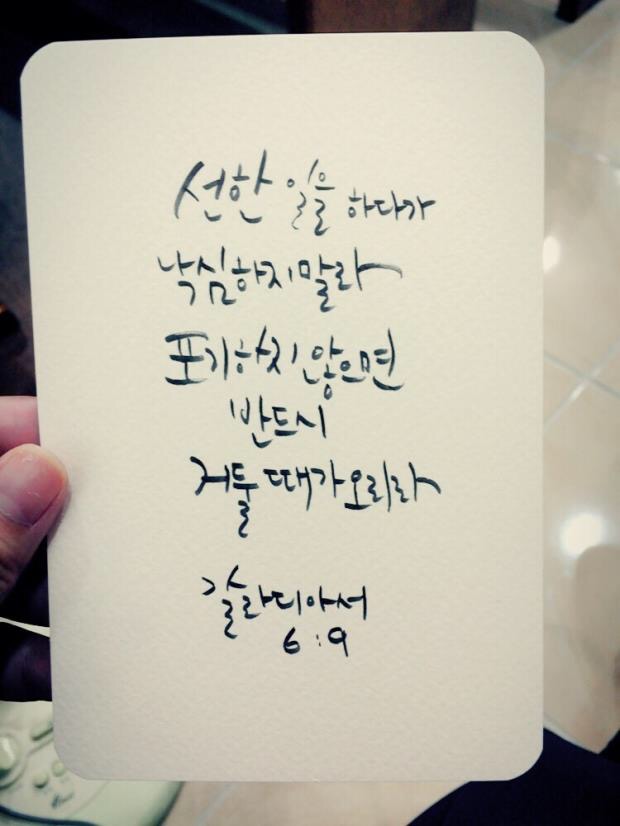 선한 일을 하다가
낙심하지말라
포기하지 않으면
반드시
거둘 때가 오리라
갈라디아서
6:9